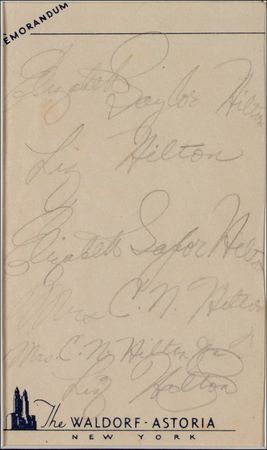 MEMORANDUM
Elizabeth Taylor Hilton
Liz Hilton
Elizabeth Taylor Hilton
Mrs C. N. Hilton
Jr
Mrs. C. N. Hilton Jr
Liz Hilton
The WALDORF-ASTORIA
NEW YORK